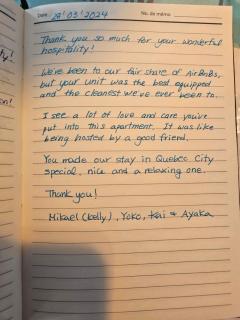 Date: 19/03/2024 No. de mémo:
Thank you so much for your wonderful
hospitality!
We've been to our fair share of AirBnBs,
but your unit was the best equipped
and the cleanest we've ever been to.
I see a lot of love and care you've
put into this apartment. It was like
being hosted by a good friend.
You made our stay in Quebec City
special, nice and a relaxing one.
Thank you!
Mikael (belly), Yoko, Kai & Ayaka